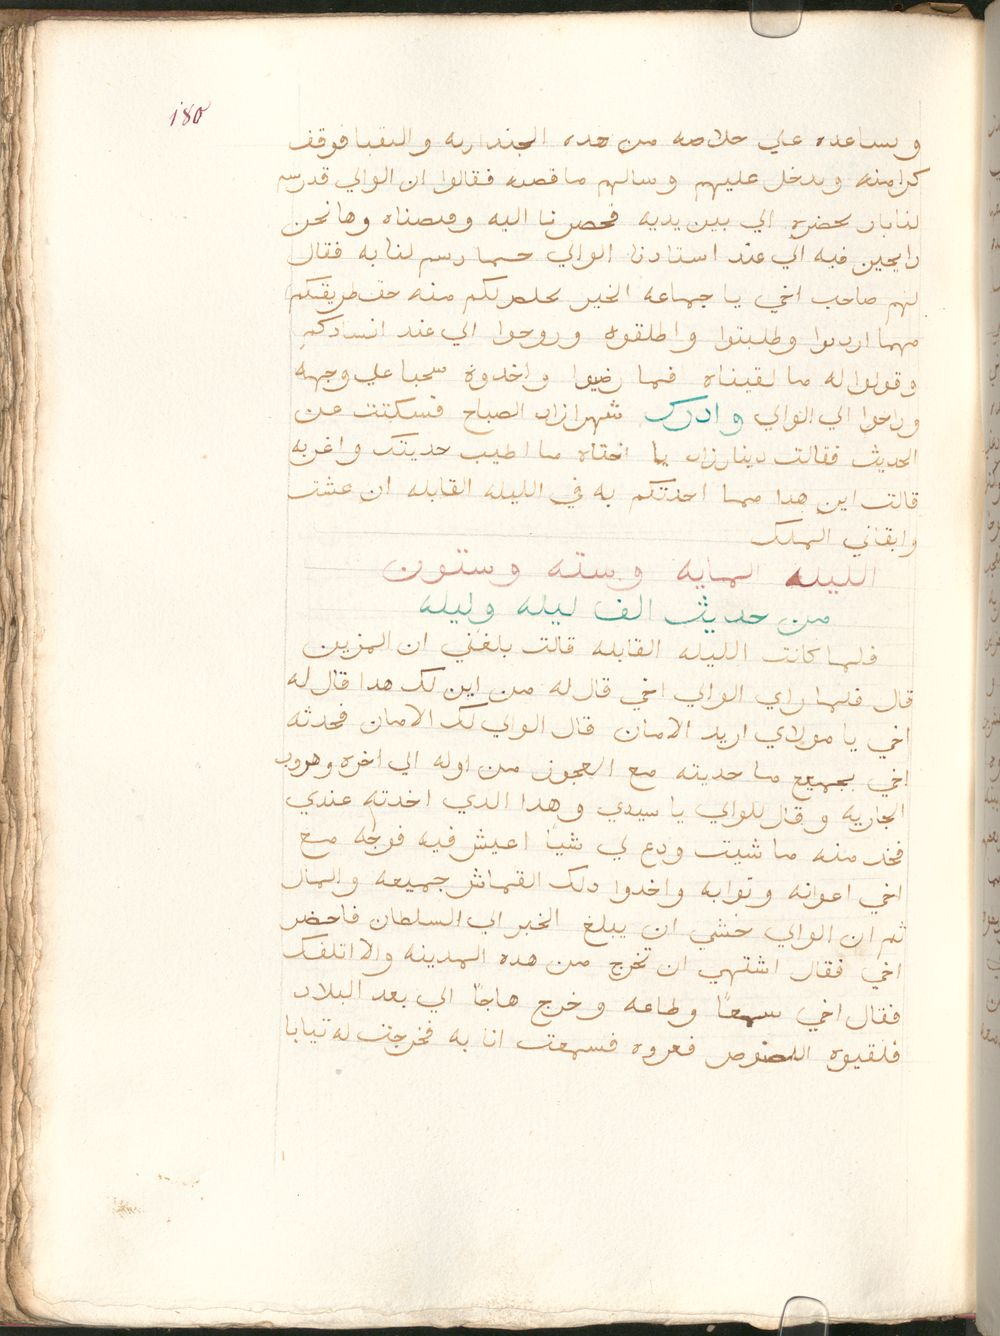 180
ويساعده علي خلاصه من هده الجنداريه والنقبا فوقف
كرامنه ويدخل عليهم وسالهم ما قصه فقالوا ان الوالي قد رسم
لنا بان نحضره الي بين يديه فحصرنا اليه وقبصناه وها نحن
رايحين فيه الي عند استادنا الوالي حسما رسم لنا به فقال
لهم صاحب اخي يا جماعه الخير نخلص لكم منه حق طريقتكم
مهما اردتوا وطلبتوا واطلقوه وروحوا الي عند استادكم
وقولوا له ما لقيناه فما رضيوا واخدوه سحبا علي وجهه
وراحوا الي الوالي وادرك شهرازاد الصباح فسكتت عن
الحديث فقالت دينارزاد يا اختاه ما اطيب حديتك واغربه
قالت اين هدا مما احدتكم به في الليله القابله ان عشت
وابقاني الملك
الليله المايه وسته وستون
من حديث الف ليله وليله
فلما كانت الليله القابله قالت بلغني ان المزين
قال فلما راي الوالي اخي قال له من اين لك هدا قال له
اخي يا مولاي اريد الامان قال الوالي لك الامان فحدثه
اخي بجميع ما حديته مع العجوز من اوله الي اخره وهروب
الجاريه وقال للوالي يا سيدي وهدا الدي اخدته عندي
فخد منه ما شيت ودع لي شيا اعيش فيه فوجه مع
اخي اعوانه ونوابه واخدوا دلك القماش جميعه والمال
ثم ان الوالي خشي ان يبلغ الخبر الي السلطان فاحضر
اخي فقال اشتهي ان تخرج من هده المدينه والا اتلفك
فقال اخي سمعًا وطاعه وخرج هاجًا الي بعد البلاد
فلقيوه اللصوص فعروه فسمعت انا به فخرجت له تيابا